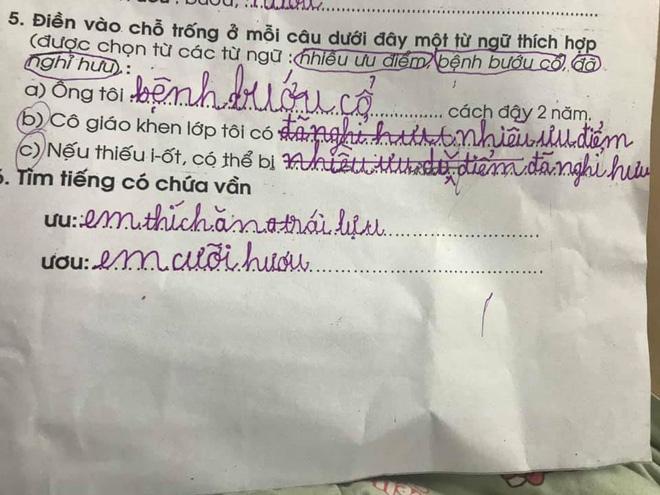 5. Điền vào chỗ trống ở mỗi câu dưới đây một từ ngữ thích hợp
(được chọn từ các từ ngữ : nhiều ưu điểm, bệnh bướu cổ, đã
nghỉ hưu) :
a) Ông tôi bệnh bướu cổ cách đây 2 năm.
b) Cô giáo khen lớp tôi có đã nghỉ hưu nhiều ưu điểm
c) Nếu thiếu i-ốt, có thể bị nhiều ưu điểm đã nghỉ hưu
6. Tìm tiếng có chứa vần
ưu: em thích ăn trái lựu
ươu: em cưỡi hươu